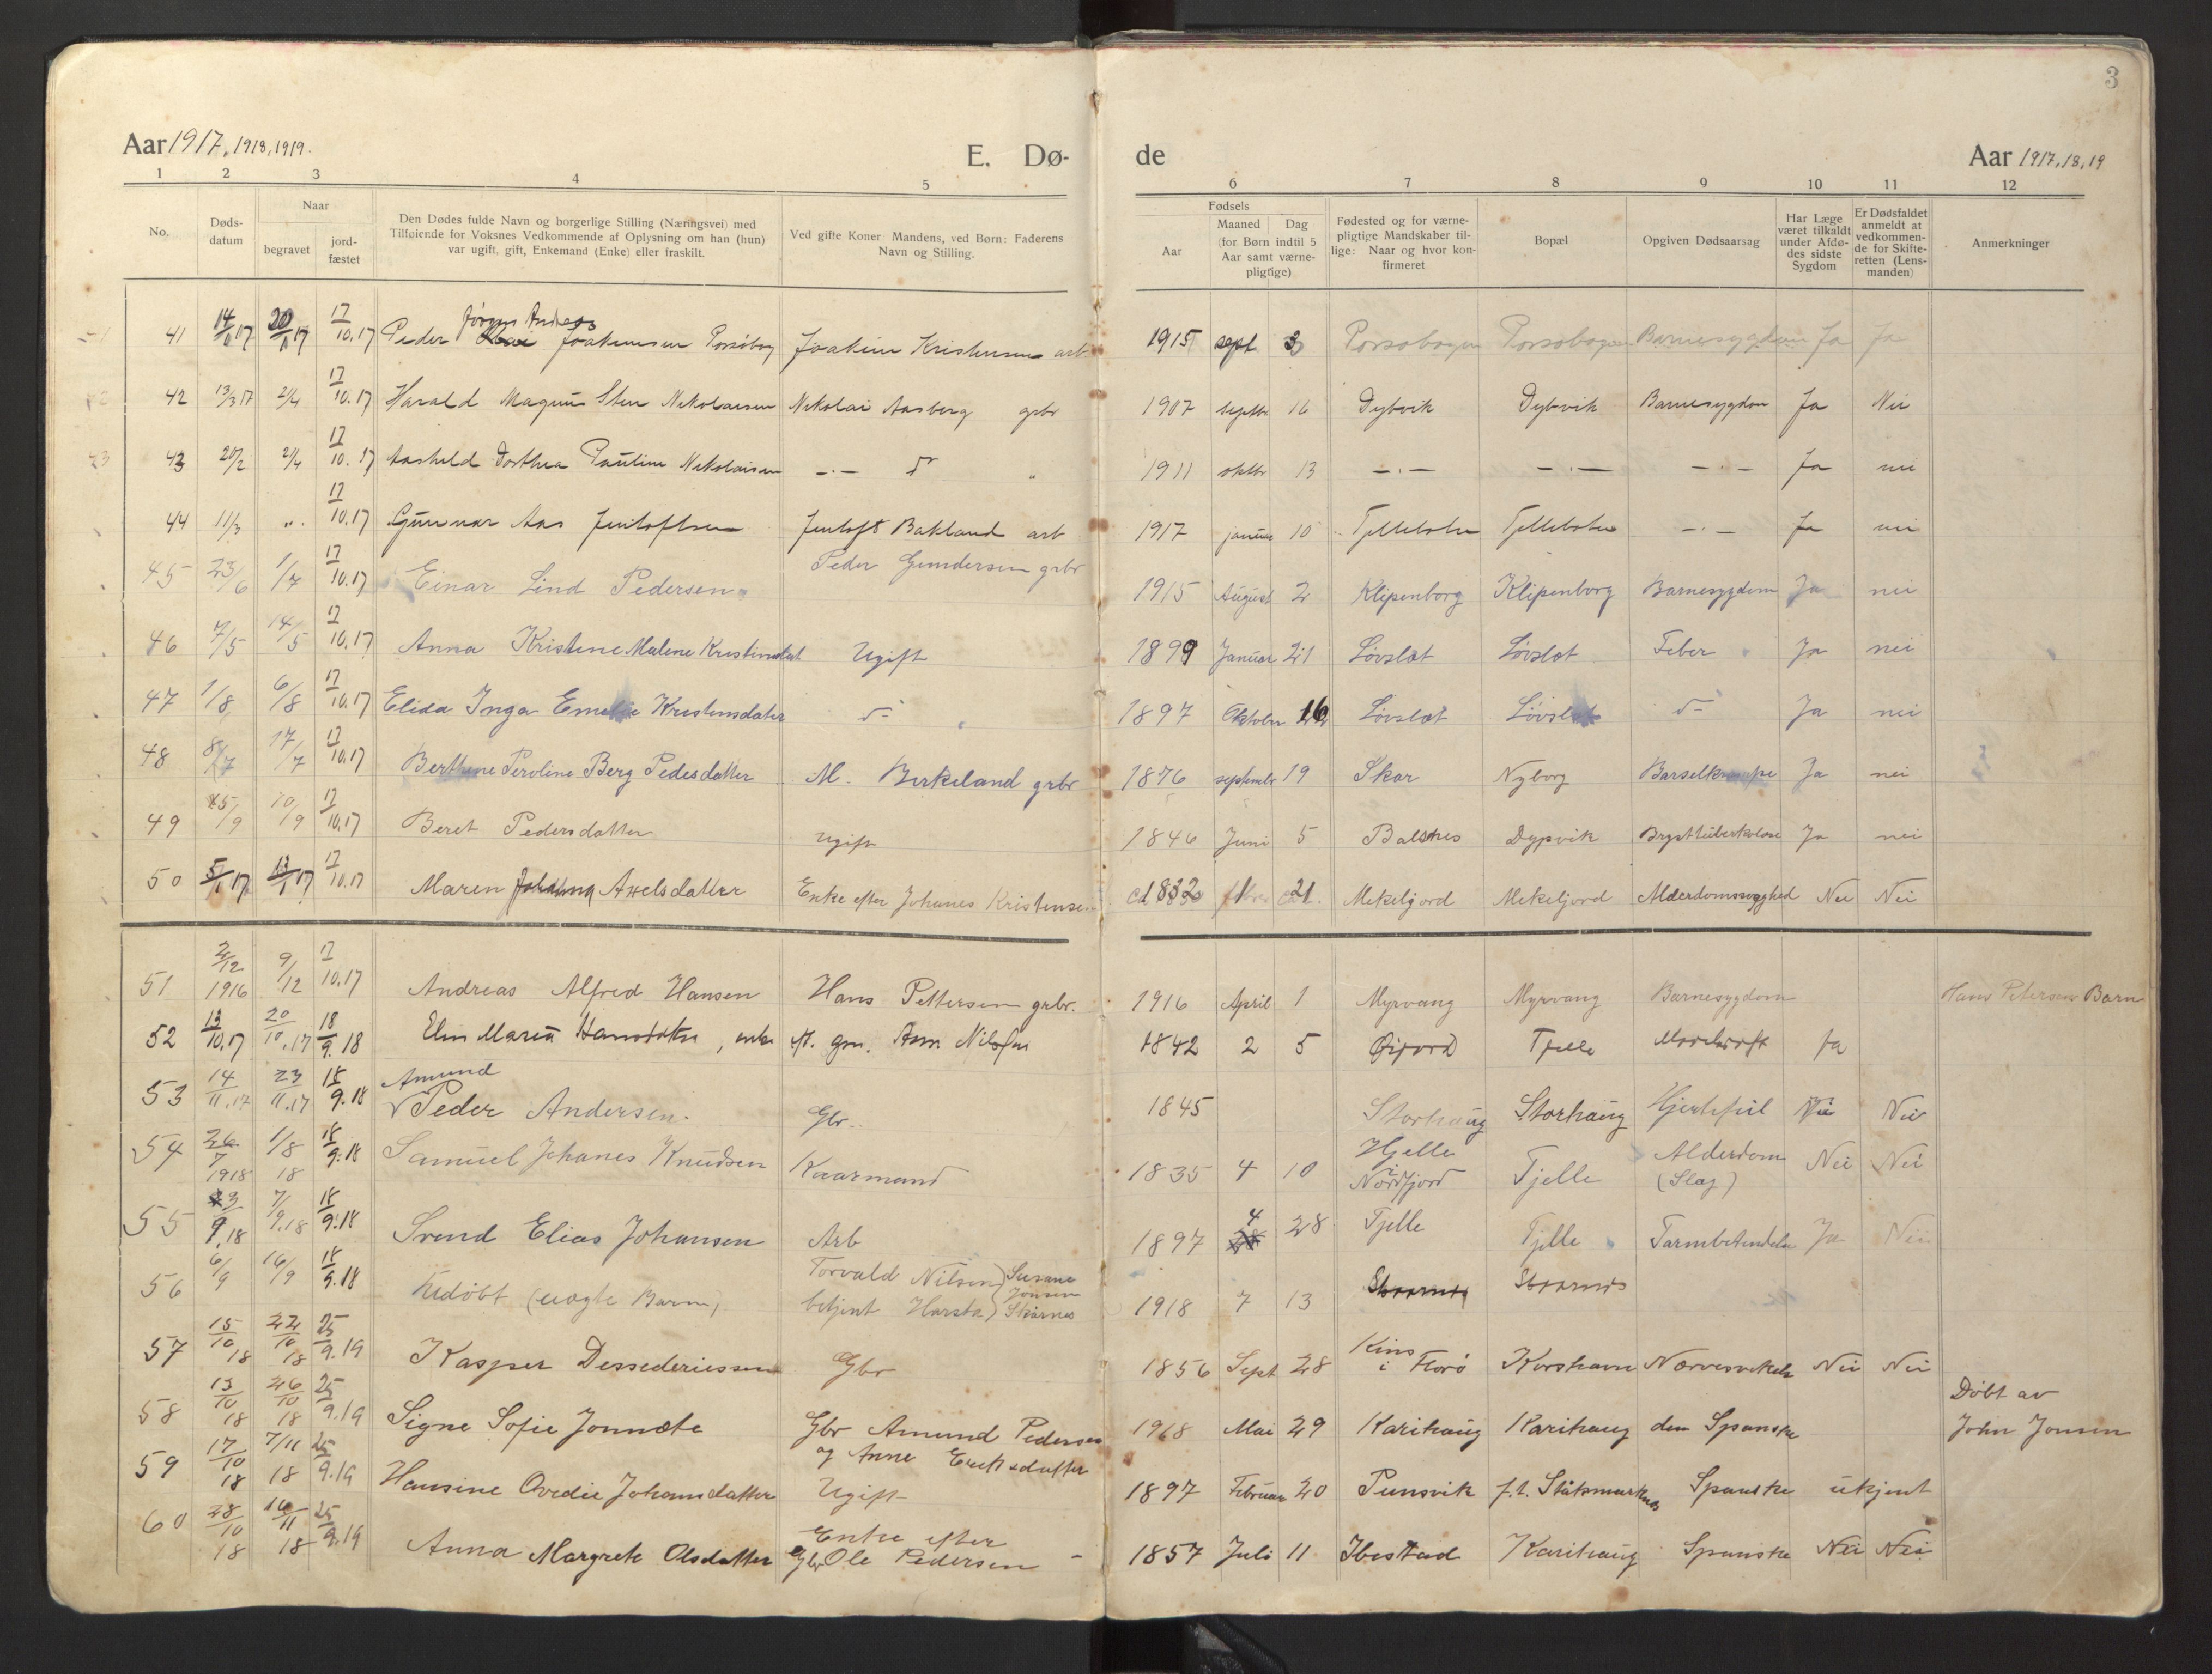 3
Aar 1917, 1918, 1919.
E. Dø-
de
Aar 1917, 18, 19
1 2 3 4 5 6 7 8 9 10 11 12
No.
Døds-
datum
Naar
begravet
jord-
fæstet
Den Dødes fulde Navn og borgerlige Stilling (Næringsvei) med
Tilføiende for Voksnes Vedkommende af Oplysning om han (hun)
var ugift, gift, Enkemand (Enke) eller fraskilt.
Ved gifte Koner: Mandens, ved Børn: Faderens
Navn og Stilling.
Fødsels
Aar
Maaned Dag
(for Børn indtil 5
Aar samt værne-
pligtige)
Fødested og for værne-
pligtige Mandskaber til-
lige: Naar og hvor kon-
firmeret
Bopæl
Opgiven Dødsaarsag
Har Læge
været tilkaldt
under Afdø-
des sidste
Sygdom
Er Dødsfaldet
anmeldt at
vedkommen-
de for Skifte-
retten (Lens-
manden)
Anmerkninger
Jørgen Andreas
41 14/11 17 20/11 17 17/10.17 Peder Joakimsen Joakim Kristensen arb 1915 sept 3 Porsobogen Porsobogen Barnesygdom Ja Ja
42 13/3 17 2/4 17/10.17 Harald Magnus Sten Nikolaisen Nikolai Aasberg grbr 1907 septbr 16 Dybvik Dybvik Barnesygdom Ja Nei
43 20/2 2/4 17/10.17 Aashild Dorthea Pauline Nikolaisen -.- 1911 oktbr 13 -.- -.- -.- Ja nei
44 11/3 " 17/10.17 Gunnar Aas Jentoftsen Jentoft Bakland arb 1917 januar 10 -.- Ja nei
45 23/6 1/7 17/10.17 Einar Lind Pedersen Peder Gundersen grbr 1915 August 2 Klipenborg Klipenborg Barnesygdom Ja nei
46 7/5 14/5 17/10.17 Anna Kristine Malene Kristinsdat Ugift 1899 Januar 21 Løvslet Løvslet Feber Ja nei
47 1/8 6/8 17/10.17 Elida Inga Emelie Kristensdater 1897 Oktober 16 Løvslet Løvslet Ja nei
48 8/7 17/7 17/10.17 Berthine Peroline Berg Pedersdatter M. Birkeland grbr 1876 septembr 19 Skar Nyborg Barselkrampe Ja nei
49 5/9 10/9 17/10.17 Beret Pedersdatter ugift 1846 Juni 5 Balsnes Dypvik Brysttuberkolose Ja nei
50 5/1 17 13/1 17 17/10.17 Maren Johanna Axelsdatter Enke efter Johanes Kristensen 1832 21. Mekeljord Mekeljord Alderdomssvaghed Nei Nei
51 2/12 1916 9/12 17/10.17 Andreas Alfred Hansen Hans Pettersen grbr. 1916 April 1 Myrvang Myrvang Barnesygdom Hans Petersens Barn
52 13/10.17 20/10.17 18/9.18 Elen Maria Hansdatter, enke eft. gm. Nilsen 1842 2 5 Øifjord Tjelle Ja
Amund
53 14/11.17 23/11.17 18/9.18 Peder Andersen. Gbr. 1845 Storhaug Storhaug Hjertefeil Nei Nei
54 26/7 1918 1/8 18 18/9.18 Samuel Johanes Knudsen Kaarmand 1835 4 10 Hjelle i Nordfjord Tjelle Alderdom (Slag) Nei Nei
55 3/9.18 7/9.18 18/9.18 Svend Elias Johansen Arb 1897 4 28 Tjelle Tjelle Tarmbetendelse Ja Nei
56 6/9 16/9 18/9.18 Udøbt (uægte Barn) Torvald Nilsen betjent Harstad Susane Jonsen Skarnes 1918 7 13
57 15/10 18 22/10 18 25/9.19 Kasper Dessederiussen Gbr 1856 Sept 28 Kins i Florø Korshavn Nervesvekelse Nei Nei
58 13/10 18 26/10 18 25/9.19 Signe Sofie Jonnæte Gbr Amund Pedersen og Anne Eriksdatter 1918 Mai 29 Karihaug Karihaug den Spanske Døbt av John Jonsen
59 17/10 18 7/11 18 25/9.19 Hansine Ovedie Johansdatter Ugift 1897 Februar 20 Punsvik f.t. Slåtsmarknes Spanske ukjent
60 28/10 18 16/11 18 25/9.19 Anna Margrete Olsdatter Enke efter Gbr Ole Pedersen 1857 Juli 11 Ibestad Karihaug Spanske Nei Nei